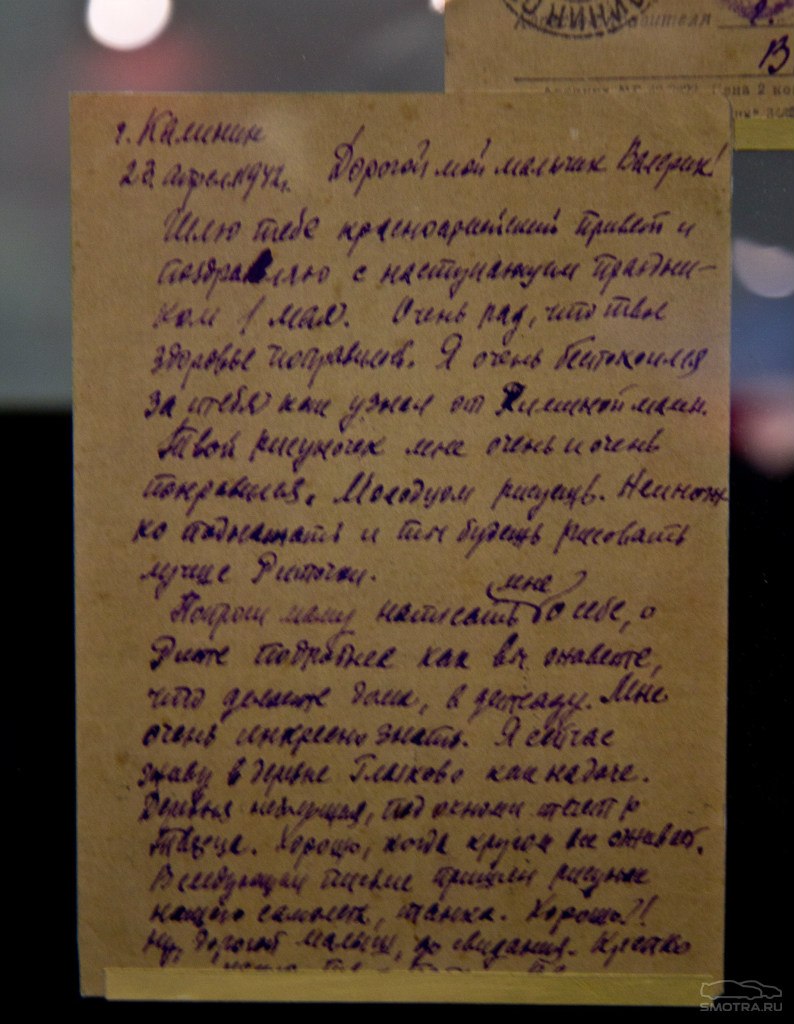 КАЛИНИН
Адрес отправителя
В
Цена 2 коп
г. Калинин
23 апреля 1942 г. Дорогой мой мальчик Валерик!
Шлю тебе красноармейский привет и
поздравляю с наступающим праздни-
ком 1 мая. Очень рад, что твое
здоровье поправилось. Я очень беспокоился
за тебя как узнал от мамы.
Твой рисуночек мне очень и очень
понравился. Молодцом рисуешь. Немнож-
ко поднажать и ты будешь рисовать
лучше Риточки.
мне
Попроси маму написать о себе, о
Рите подробнее как вы живете,
что делаете дома, в детсаду. Мне
очень интересно знать. Я сейчас
живу в деревне как на даче.
Деревня под окнами течет р
Хорошо, когда кругом все оживает.
В следующем письме пришли рисунок
нашего самолета, танка. Хорошо?!
Ну, дорогой малыш, до свидания. Крепко
SMOTRA.RU